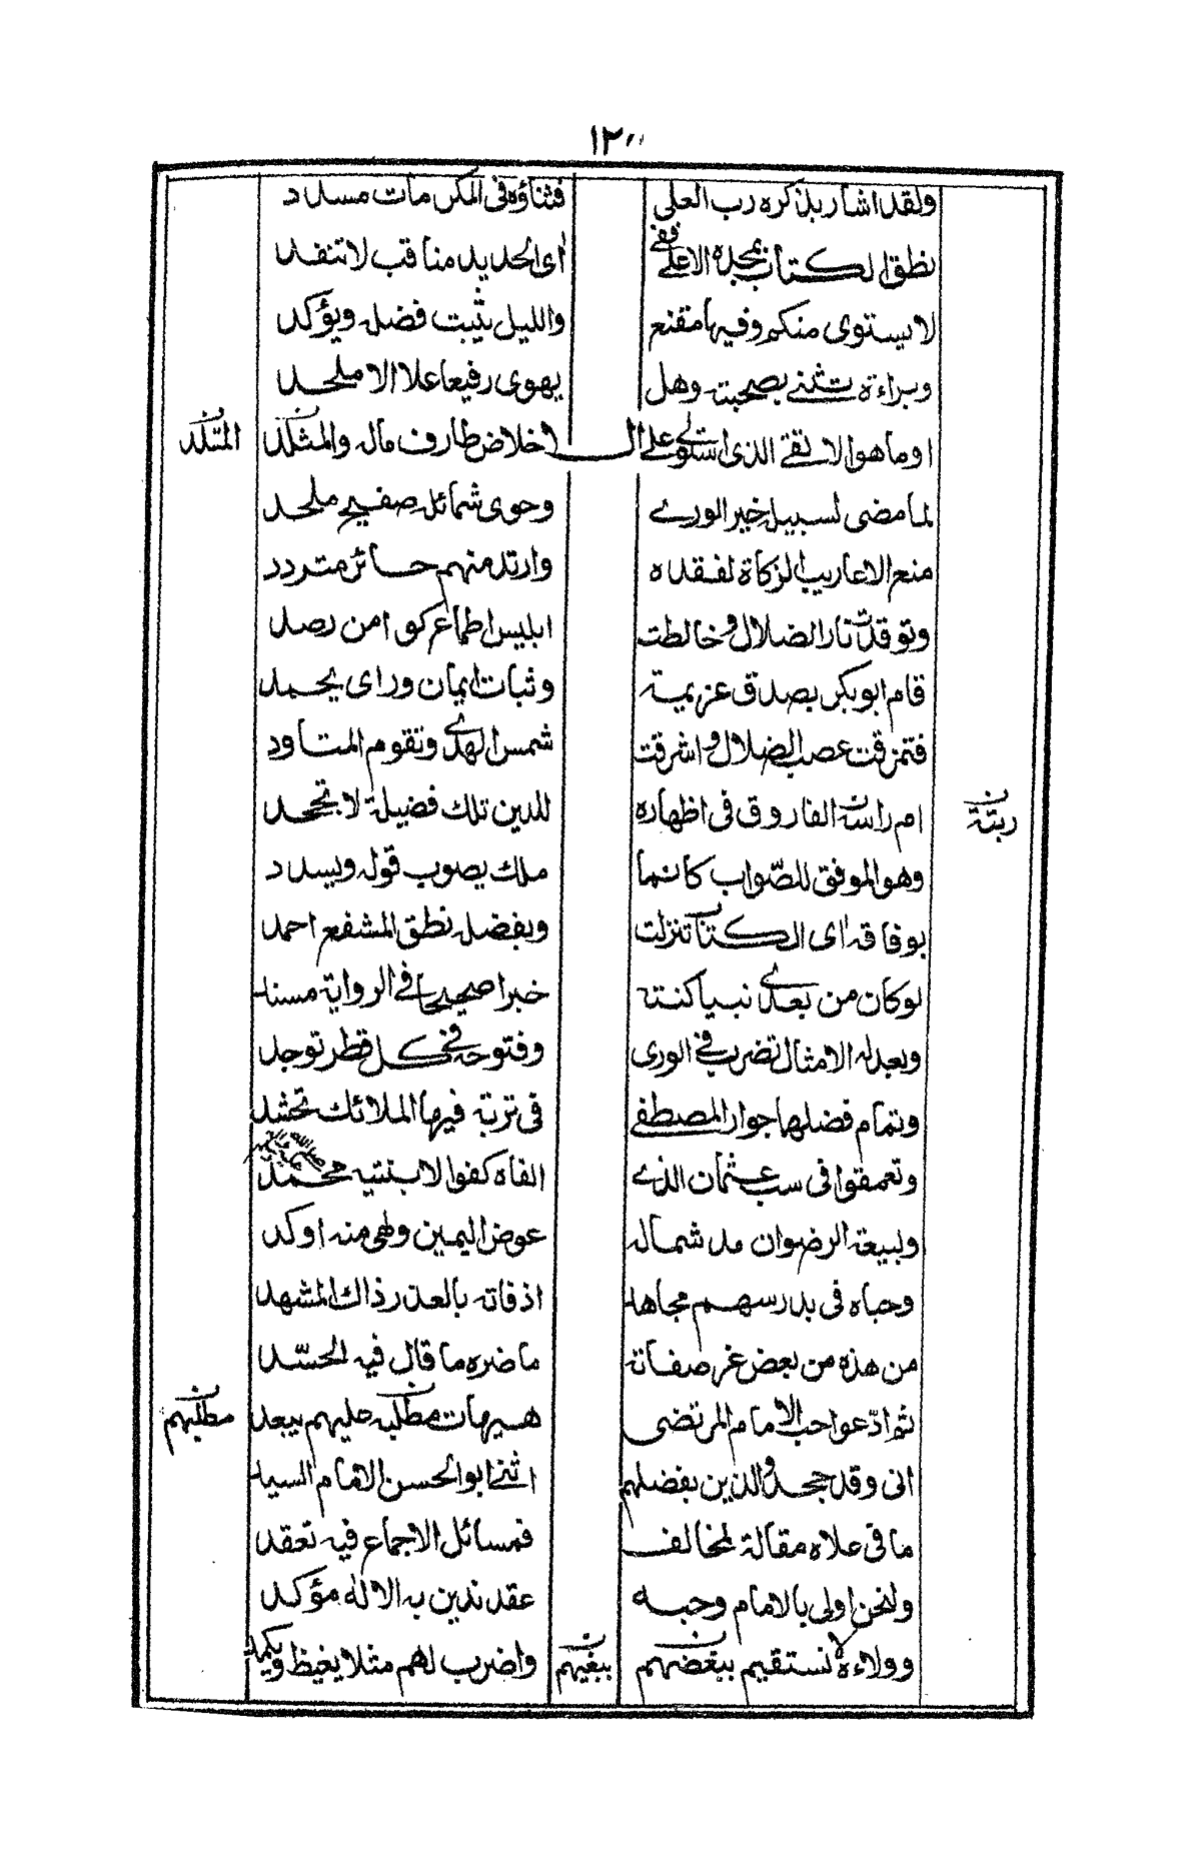 ١٢٠
ولقد اشار بذكره رب العلى فثناؤه فى المكرمات مسدد
نطق الكتاب بمجده الاعلى ففى اى الحديد مناقب لا تنفد
لا يستوى منكم وفيها مقنع والليل يثبت فضله ويؤكد
وبراءة تثنى بصحبته وهل يهوى رفيعا علا الا ملحد
او ما هو الاتقى الذى استولى على الاخلاص طارف ماله والمثكد المتلد
لما مضى لسبيل خير الورى وحوى شمائله صفيح ملحد
منع الاعاريب الزكاة لفقده وارتد منهم حائر متردد
وتوقدت نار الضلال وخالطت ابليس اطماع كوامن رصد
قام ابو بكر بصدق عزيمة وثبات ايمان وراى يحمد
فتمزقت عصب الضلال واشرقت شمس الهدى وتقوم المتاود
ام راسة الفاروق فى اظهاره للدين تلك فضيلة لا تجحد ربتة
وهو الموفق للصواب كانما ملك يصوب قوله ويسدد
بوفاقه اى الكتاب تنزلت وبفضله نطق المشفع احمد
لو كان من بعدى نبيا كنته خبرا صحيحا فى الرواية مسند
وبعدله الامثال تضرب فى الورى وفتوحه فى كل قطر توجد
وتمام فضلها جوار المصطفى فى تربة فيها الملائك تحشد
وتعمقوا فى سب عثمان الذى الفاه كفوا لابنتيه محمد
ولبيعة الرضوان مد شماله عوض اليمين ولهى منه اوكد
وحباه فى بدر بسهم مجاهد اذ فاته بالعذر ذاك المشهد
من هذه من بعض غر صفاته ما ضره ما قال فيه الحسد
ثم ادعوا حب الامام المرتضى هيهات مطلبه عليهم يبعد مطلبهم
انى وقد جحدوا الذين بفضلهم اثنى ابو الحسن الامام السيد
ما فى علاه مقالة لمخالف فمسائل الاجماع فيه تعقد
ولنحن اولى بالامام وحبه عقد ندين به الاله مؤكد
وولاءه لا نستقيم ببغضهم ببغيهم واضرب لهم مثلا يغيظ ويكمد